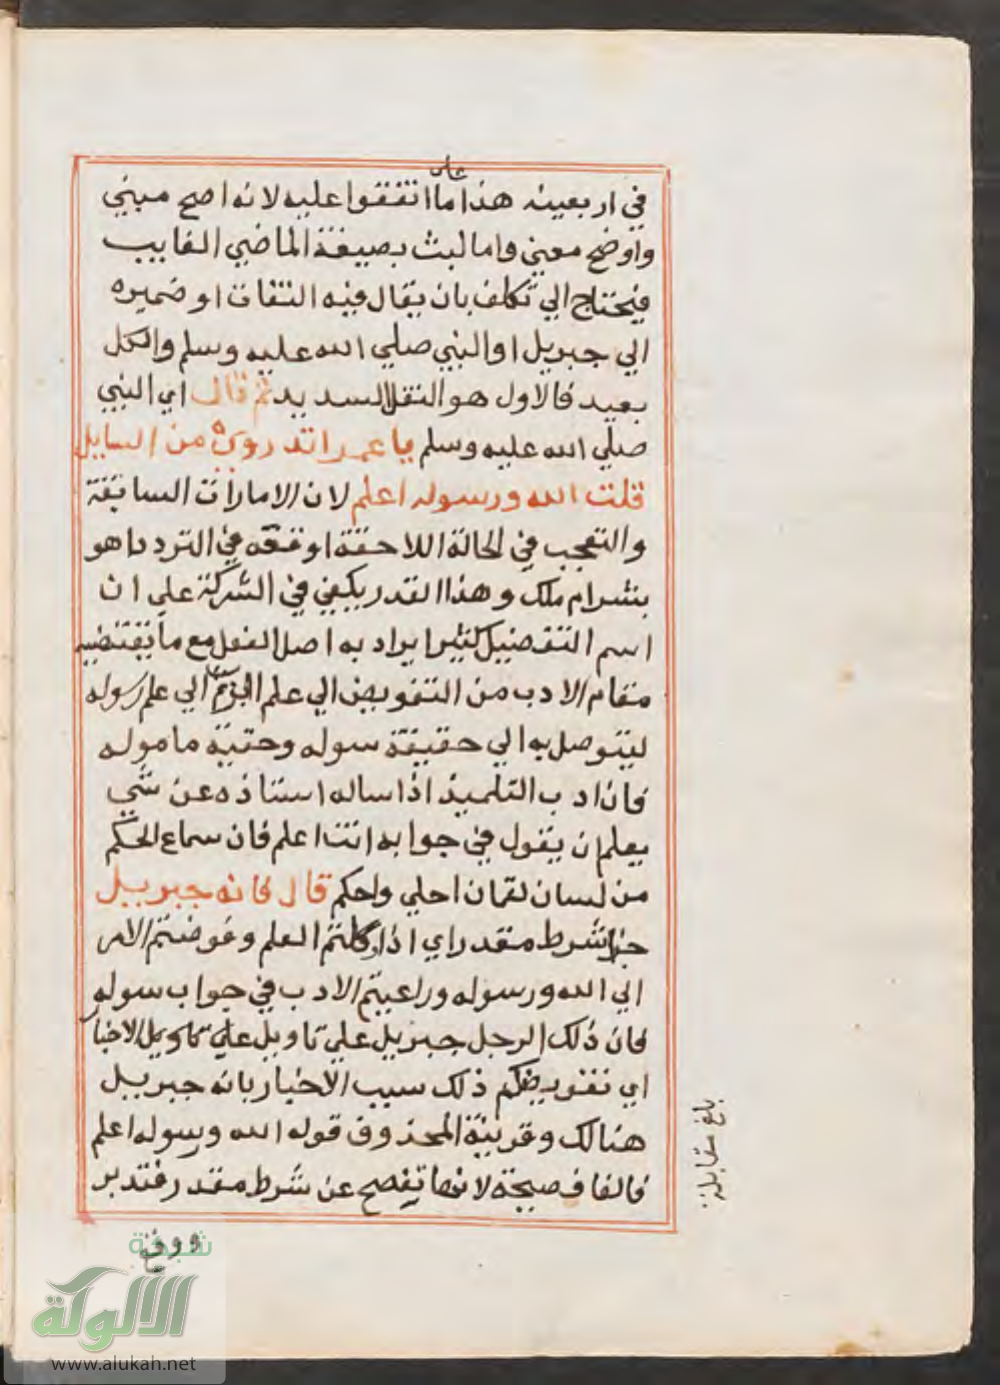 على
في اربعينه هذا ما اتفقوا عليه لانه اصح مبني
واوضح معني واما لبث بصيغة الماضي الغايب
فيحتاج الي تكلف بان يقال فيه التفات او ضميره
الي جبريل او النبي صلي الله عليه وسلم والكل
بعيد فالاول هو النقل السديد ثم قال اي النبي
صلي الله عليه وسلم يا عمر اتدروي من السايل
قلت الله ورسوله اعلم لان الامارات السابقة
والتعجب في الحالة اللاحقة اوقعه في التردد اهو
بشر ام ملك وهذا القدر يكفي في الشركة علي ان
اسم التفضيل كثيرا يراد به اصل الفعل مع ما يقتضيه
مقام الادب من التفويض الي علم الي علم رسوله
ليتوصل به الي حقيقة سوله وحقية ماموله
فان ادب التلميذ اذا ساله استاذه عن شي
يعلم ان يقول في جوابه انت اعلم فان سماع الحكم
من لسان لقمان احلي واحكم قال فانه جبرييل
جزا شرط مقدر اي اذا وكلتم العلم وفوضتم الامر
الي الله ورسوله وراعيتم الادب في جواب سوله
فان ذلك الرجل جبريل علي تاويل علي تاويل الاخبا
اي تفويضكم ذلك سبب الاخبار بانه جبرييل
هنالك وقرينة المحذوف قوله الله ورسوله اعلم
فالفا فصيحة لانها تفصح عن شرط مقدر فتدبر
ووقع
بلغ مقابلة
شبكة
الألوكة
www.alukah.net